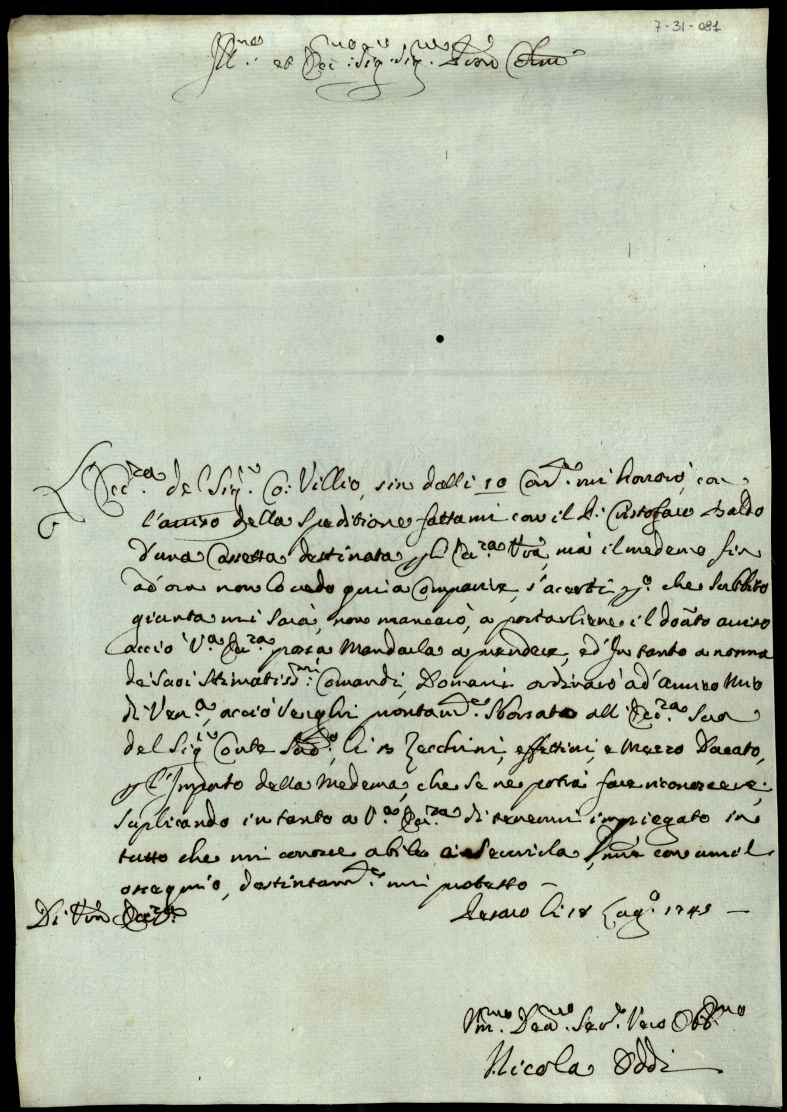 7-31-081
Ill.mo et Ecc.mo Sig.re Sig.re Pron Col.mo
L'Ecc.za del Sig.re Co: Villio, sin dalli 10 Cor.te mi honorò, con
l'auiso della Speditione fattami con il Pn. Cristofaro Baldo
d'una Cassetta destinata p l'Ecc.za Vrã, mà il medemo sin
ad'ora non lo uedo quiui Comparire, s'acerti p.ò che subbito
giunta mi sarà, non mancarò, a portarliene il douto auiso
acciò V.a Ecc.za possa Mandarla a prendere, ed'In tanto a norma
de Suoi Stimatiss.mi Comandi, Domani ordinarò ad'amico Mio
di Ven.a, acciò Venghi prontam.te Sborsato all'Ecc.za Sua
del Sig.re Conte Sud.o, li 13 Zecchini, effettiui, e Mezzo Ducato,
p l'Importo della Medema, che se ne potrà fare riconoscere;
Suplicando in tanto a V.a Ecc.za di tenermi impiegato in
tutto che mi conosce abile a Seruirla, mẽ con umil
ossequio, destintam.te mi protesto –
Di Vrã Ecc.za
Pesaro li 18 Lug.o 1749 –
Vm.mo Deu.mo Ser.re Vero Obb.mo
Nicola Oddi